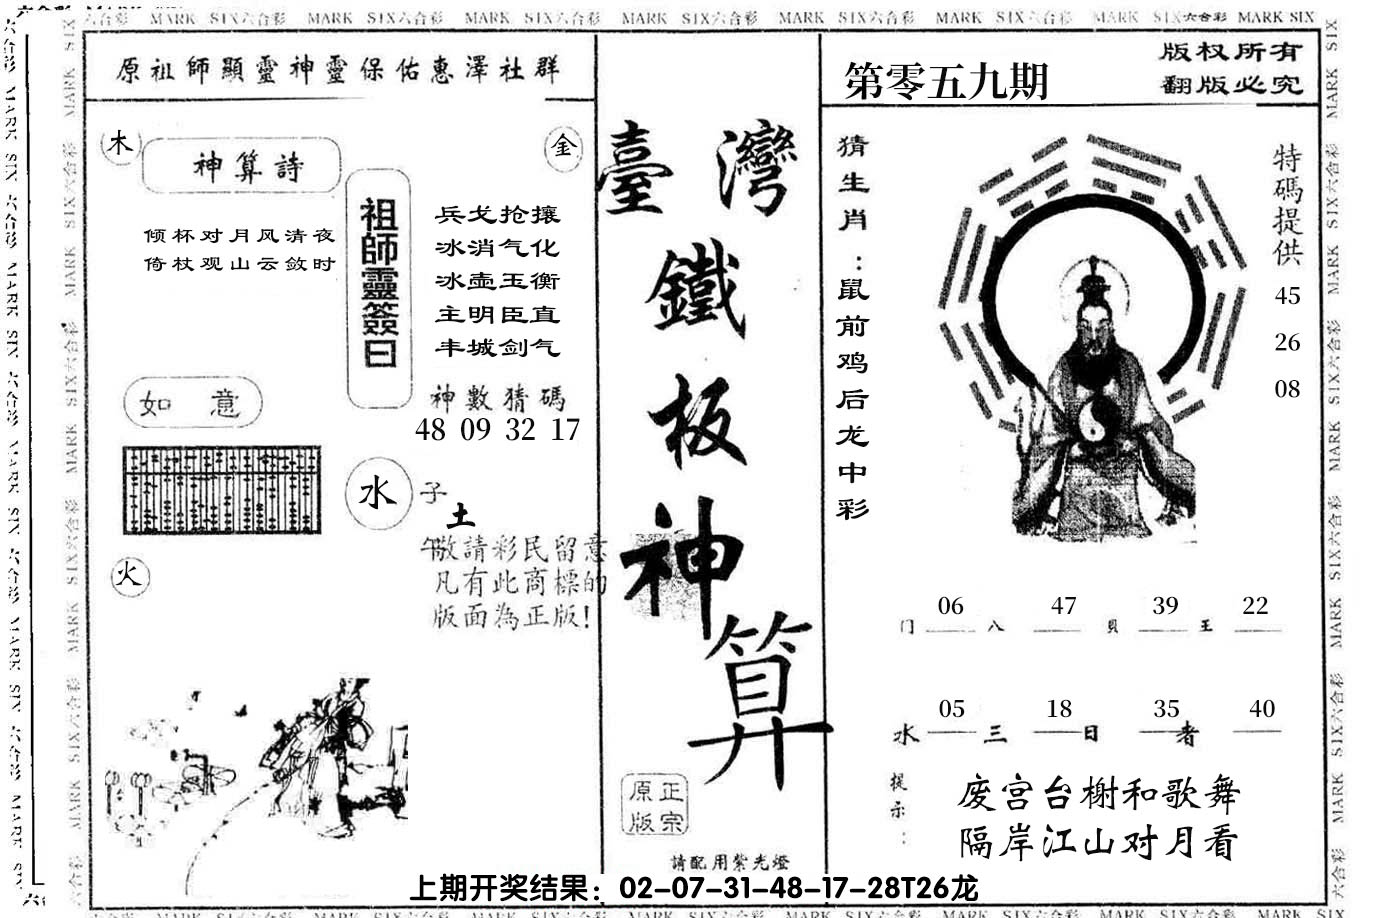 MARK SIX六合彩 MARK SIX六合彩 MARK SIX六合彩 MARK SIX六合彩 MARK SIX六合彩 MARK SIX六合彩 MARK SIX六合彩 MARK SIX
原祖師顯靈神靈保佑惠澤社群
木
金
神算詩
倾杯对月风清夜
倚杖观山云敛时
祖師靈簽曰
兵戈抢攘
冰消气化
冰壶玉衡
主明臣直
丰城剑气
神數猜碼
48 09 32 17
如意
水
子
土
午
火
敬請彩民留意
凡有此商標的
版面為正版!
臺灣
鐵
板
神
算
正宗
原版
請配用紫光燈
第零五九期
版权所有
翻版必究
猜生肖:鼠前鸡后龙中彩
特碼提供
45
26
08
06 47 39 22
门 八 貝 王
05 18 35 40
水 三 日 者
提示:
废宫台榭和歌舞
隔岸江山对月看
上期开奖结果：02-07-31-48-17-28T26龙